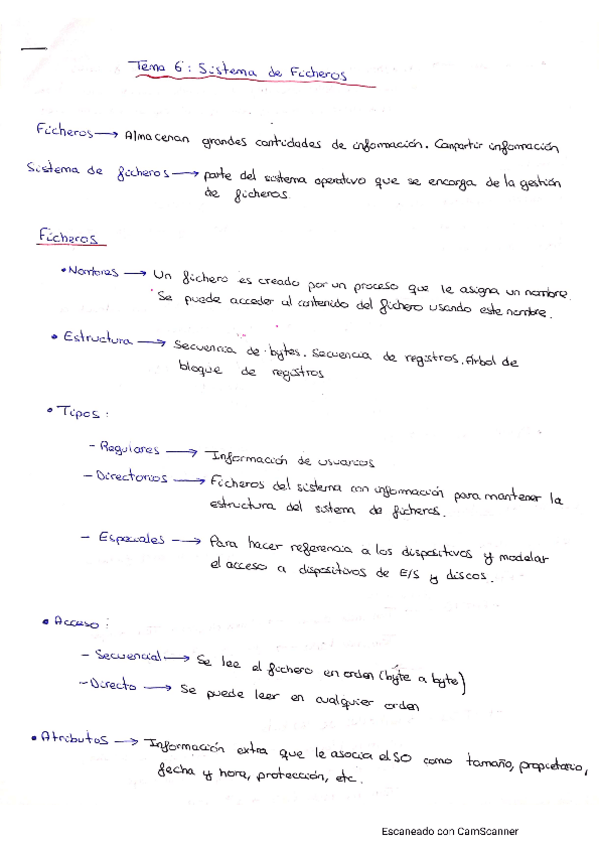 Tema 6: Sistema de Ficheros
Ficheros → Almacenan grandes cantidades de información. Compartir información
Sistema de ficheros → parte del sistema operativo que se encarga de la gestión
de ficheros.
Ficheros
• Nombres → Un fichero es creado por un proceso que le asigna un nombre.
Se puede acceder al contenido del fichero usando este nombre.
• Estructura → Secuencia de bytes. Secuencia de registros. Árbol de
bloque de registros
• Tipos:
- Regulares → Información de usuarios
- Directorios → Ficheros del sistema con información para mantener la
estructura del sistema de ficheros.
- Especiales → Para hacer referencia a los dispositivos y modelar
el acceso a dispositivos de E/S y discos.
• Acceso:
- Secuencial → Se lee el fichero en orden (byte a byte)
- Directo → Se puede leer en cualquier orden
• Atributos → Información extra que le asocia el SO como tamaño, propietario,
fecha y hora, protección, etc.
Escaneado con CamScanner